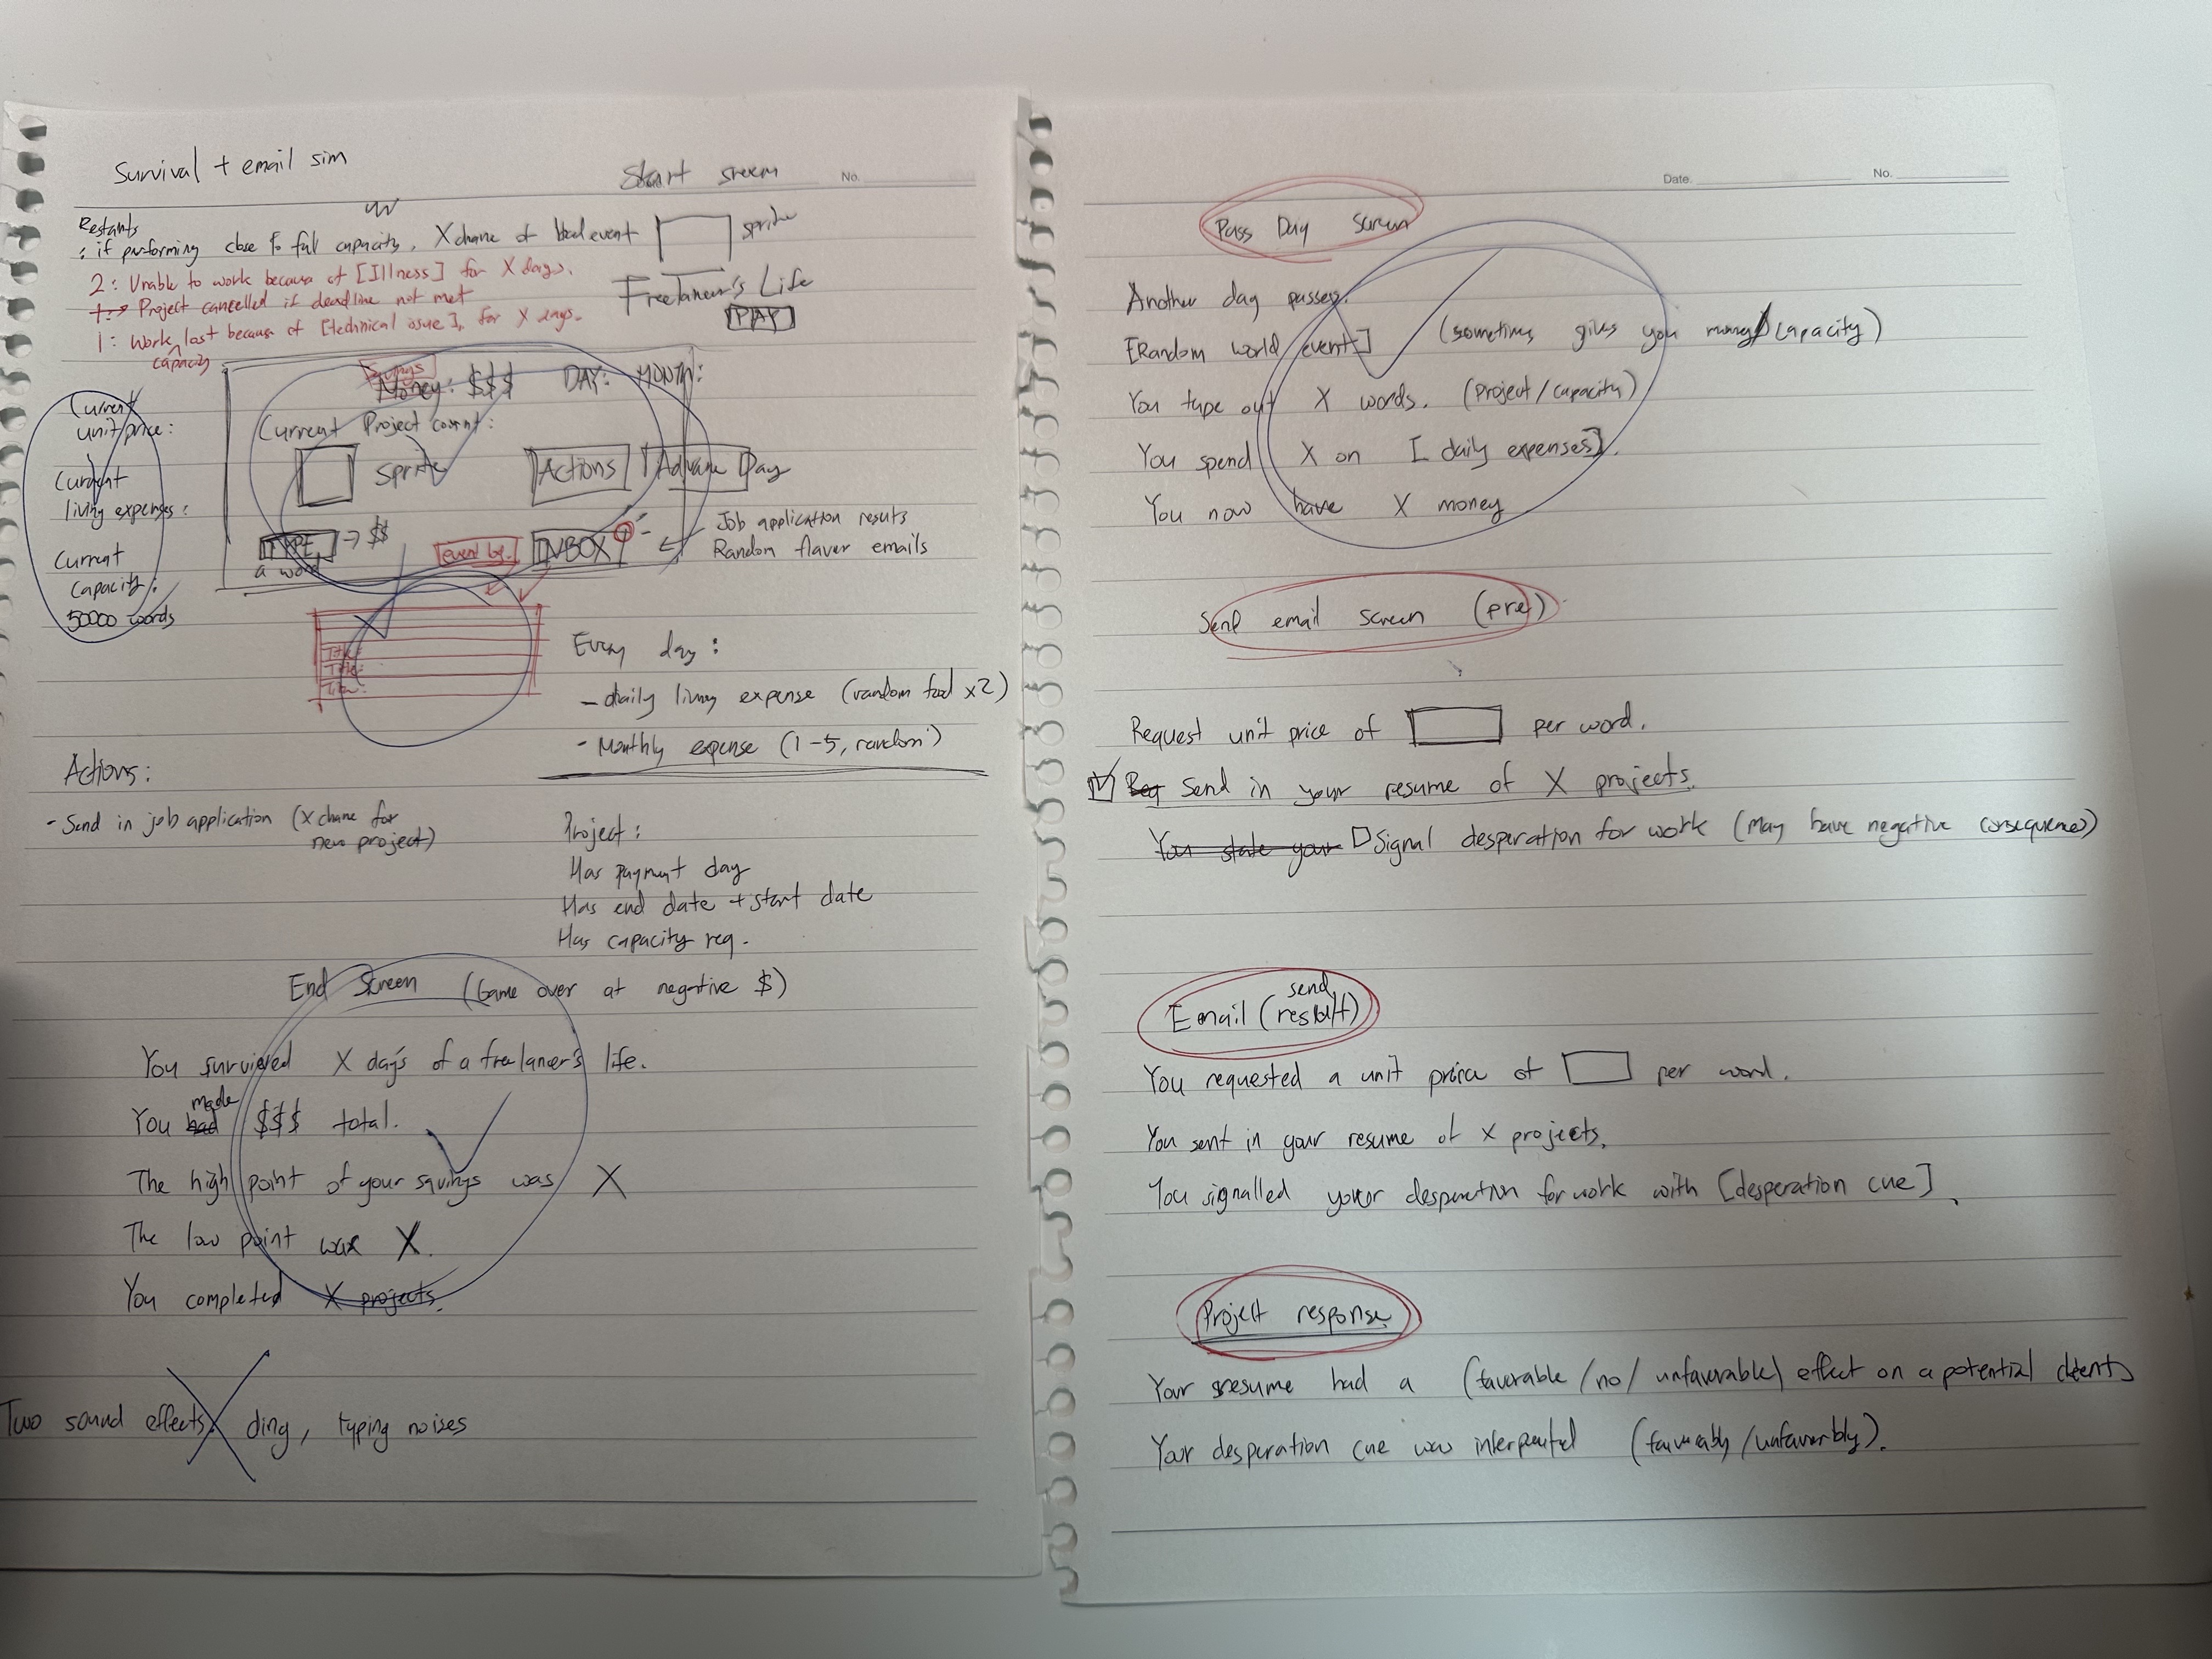 Survival + email sim
Start screen
No.
Restarts
if performing close to full capacity, X chance of bad event
sprite
2: Unable to work because of [Illness] for X days.
Project cancelled if deadline not met
1: Work capacity lost because of [technical issue], for X days.
Freelancer's Life
PLAY
Savings
Money: $$$
DAY:
MONTH:
Current unit price:
Current living expenses:
Current capacity:
50000 words
Current Project count:
Sprite
Actions
Advance Day
TYPE → $$
a word
INBOX
Job application results
Random flavor emails
Title
Title
Every day:
- daily living expense (random food x2)
- Monthly expense (1-5, random)
Actions:
- Send in job application (X chance for new project)
Project:
Has payment day
Has end date + start date
Has capacity req.
End Screen (Game over at negative $)
You survived X days of a freelancer's life.
You made $$$ total.
The high point of your savings was X
The low point was X.
You completed X projects.
Two sound effects ding, typing noises
Date.
No.
Pass Day screen
Another day passes.
[Random world event] (sometimes gives you money/capacity)
You type out X words. (project/capacity)
You spend X on [daily expenses].
You now have X money
Send email screen (pre)
Request unit price of per word.
Send in your resume of X projects.
You state your Signal desperation for work (may have negative consequences)
Email (send result)
You requested a unit price of per word.
You sent in your resume of X projects.
You signalled your desperation for work with [desperation cue].
Project response
Your resume had a (favorable/no/unfavorable) effect on a potential client
Your desperation cue was interpreted (favorably/unfavorably).